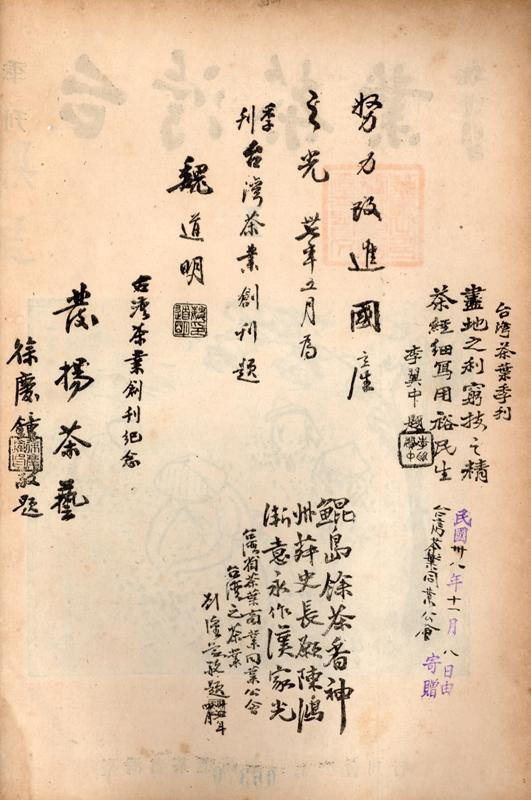 努力改進國產
之光 卅七年五月為
季刊台灣茶業創刊題
魏道明
台灣茶業季刊
盡地之利窮技之精
茶經細寫用裕民生
李翼中題
台灣茶業創刊紀念
發揚茶藝
徐慶鐘敬題
鯤島餘茶香神
州薛史長願陳鴻
漸意永作漢家光
台灣省茶葉商業同業公會
台灣之茶業
敬題
民國卅八年十一月八日由
台灣茶葉同業公會
寄贈